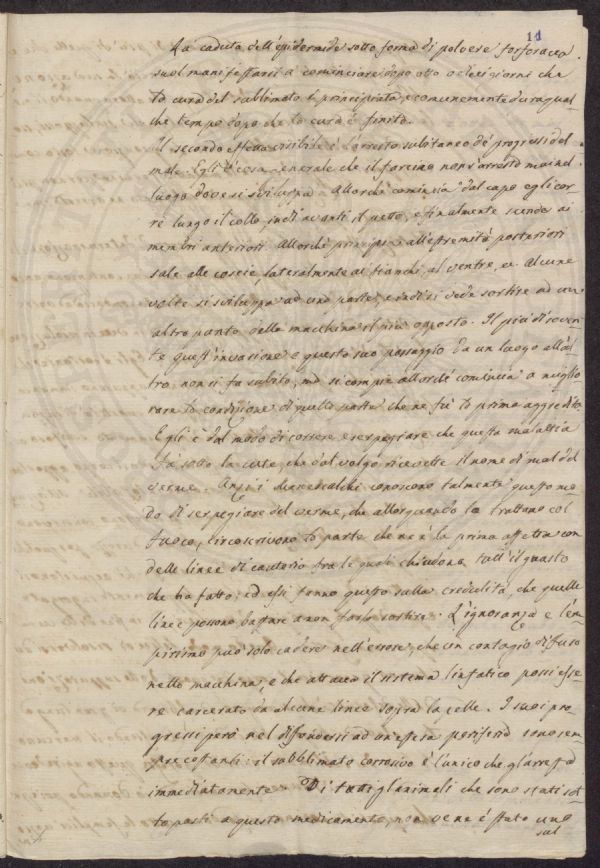 11
La caduta dell'epidermide sotto forma di polvere forforacea
suol manifestarsi a cominciare dopo otto o dieci giorni che
la cura del sublimato è principiata, e comunemente dura qual-
che tempo dopo che la cura è finita.
Il secondo effetto visibile è l'arresto subitaneo de' progressi del
male. Egli è cosa generale che il farcino non s'arresta mai nel
luogo dove si sviluppa. Allorchè comincia dal capo egli cor-
re lungo il collo, indi avanti il petto, e finalmente scende ai
membri anteriori. Allorchè principia all'estremità posteriori
sale alle coscie, lateralmente ai fianchi, al ventre, ec. Alcune
volte si sviluppa ad una parte, e indi si vede sortire ad un
altro punto della macchina il più opposto. Il più di soven-
te quest'invasione e questo suo passaggio da un luogo all'al-
tro non si fa subito, ma si compie allorchè comincia a miglio-
rare la condizione di quella parte che ne fù la prima aggredita.
Egli è dal modo di correre e serpegiare che questa malattia
fà sotto la cute, che dal volgo ricevette il nome di mal del
verme. Anzi i maniscalchi conoscono talmente questo mo-
do di serpegiare del verme, che allorquando lo trattano col
fuoco, circoscrivono la parte che ne è la prima affetta con
delle linee di cauterio fra le quali chiudono tutt'il guasto
che ha fatto; ed essi fanno questo sulla credulità, che quelle
linee possono bastare a non farlo sortire. L'ignoranza e l'em-
pirismo può solo cadere nell'errore, che un contagio difuso
nella macchina, e che attacca il sistema linfatico possi esse-
re carcerato da alcune linee sopra la pelle. I suoi pro-
gressi però nel difondersi ad un'estesa periferia sono sem-
pre costanti: il sobblimato corrosivo è l'unico che gl'arresta
immediatamente. Di tutti gl'animali che sono stati sot-
toposti a questo medicamento, non ve ne è stato uno
sul